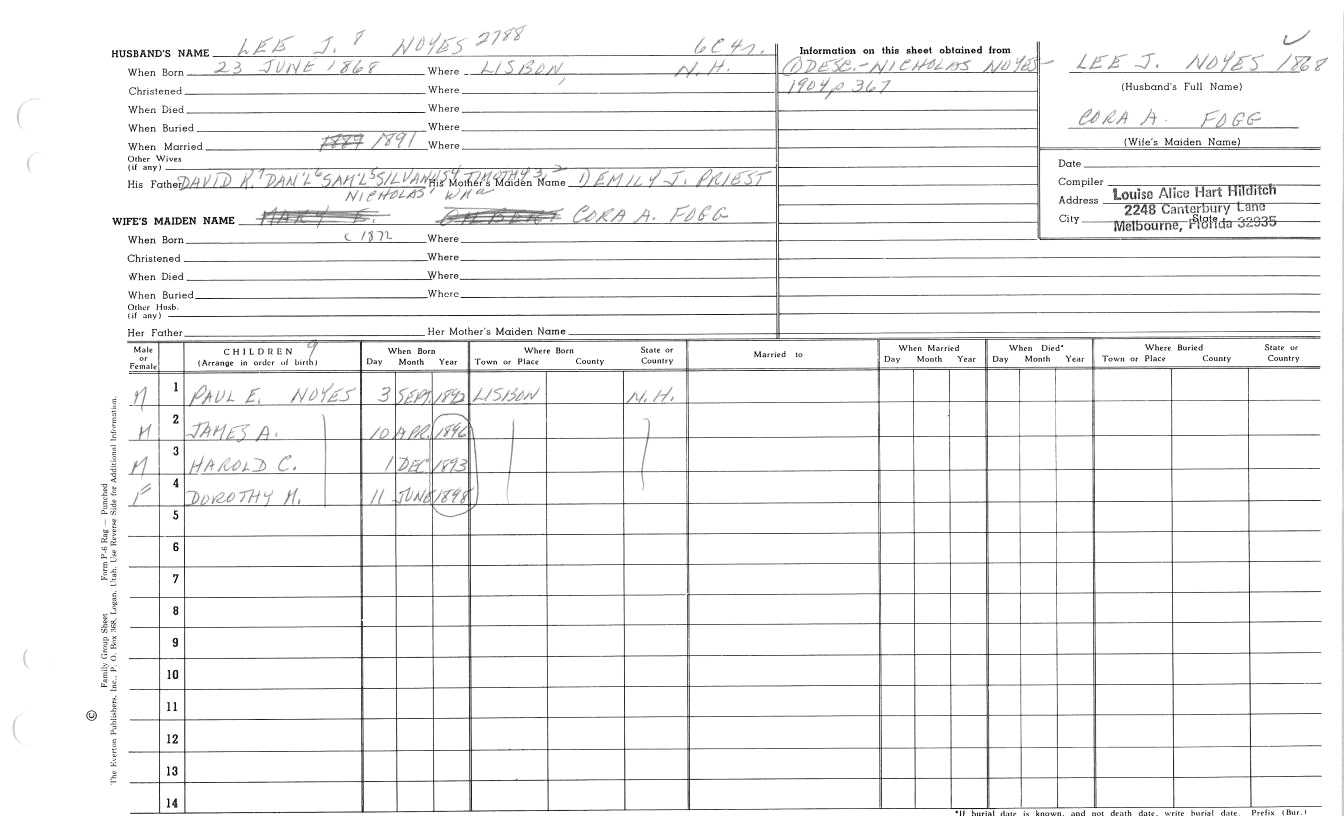 HUSBAND'S NAME LEE J. 8 NOYES 2788 6C4n.
When Born 23 JUNE 1868 Where LISBON, N.H.
Christened Where
When Died Where
When Buried Where
When Married 1889 1891 Where
Other Wives
(if any)
His Father DAVID K.7 DAN'L6 SAM'L5 SILVANUS4 TIMOTHY3,2 His Mother's Maiden Name DEMILY J. PRIEST
NICHOLAS1 Wm
WIFE'S MAIDEN NAME MARY E. GILBERT CORA A. FOGG
When Born C 1872 Where
Christened Where
When Died Where
When Buried Where
Other Husb.
(if any)
Her Father Her Mother's Maiden Name
Information on this sheet obtained from
① DESC.-NICHOLAS NOYES-
1904 p 367
LEE J. NOYES 1868
(Husband's Full Name)
CORA A. FOGG
(Wife's Maiden Name)
Date
Compiler
Address
City State
Louise Alice Hart Hilditch
2248 Canterbury Lane
Melbourne, Florida 32935
Male or Female CHILDREN 9 (Arrange in order of birth) When Born Day Month Year Where Born Town or Place County State or Country Married to When Married Day Month Year When Died* Day Month Year Where Buried Town or Place County State or Country
M 1 PAUL E. NOYES 3 SEPT. 1892 LISBON N.H.
M 2 JAMES A. 10 APR. 1896
M 3 HAROLD C. 1 DEC 1893
F 4 DOROTHY M. 11 JUNE 1898
5
6
7
8
9
10
11
12
13
14
*If burial date is known, and not death date, write burial date. Prefix (Bur.)
Family Group Sheet Form P-6 Rag — Punched
© The Everton Publishers, Inc., P. O. Box 368, Logan, Utah. Use Reverse Side for Additional Information.